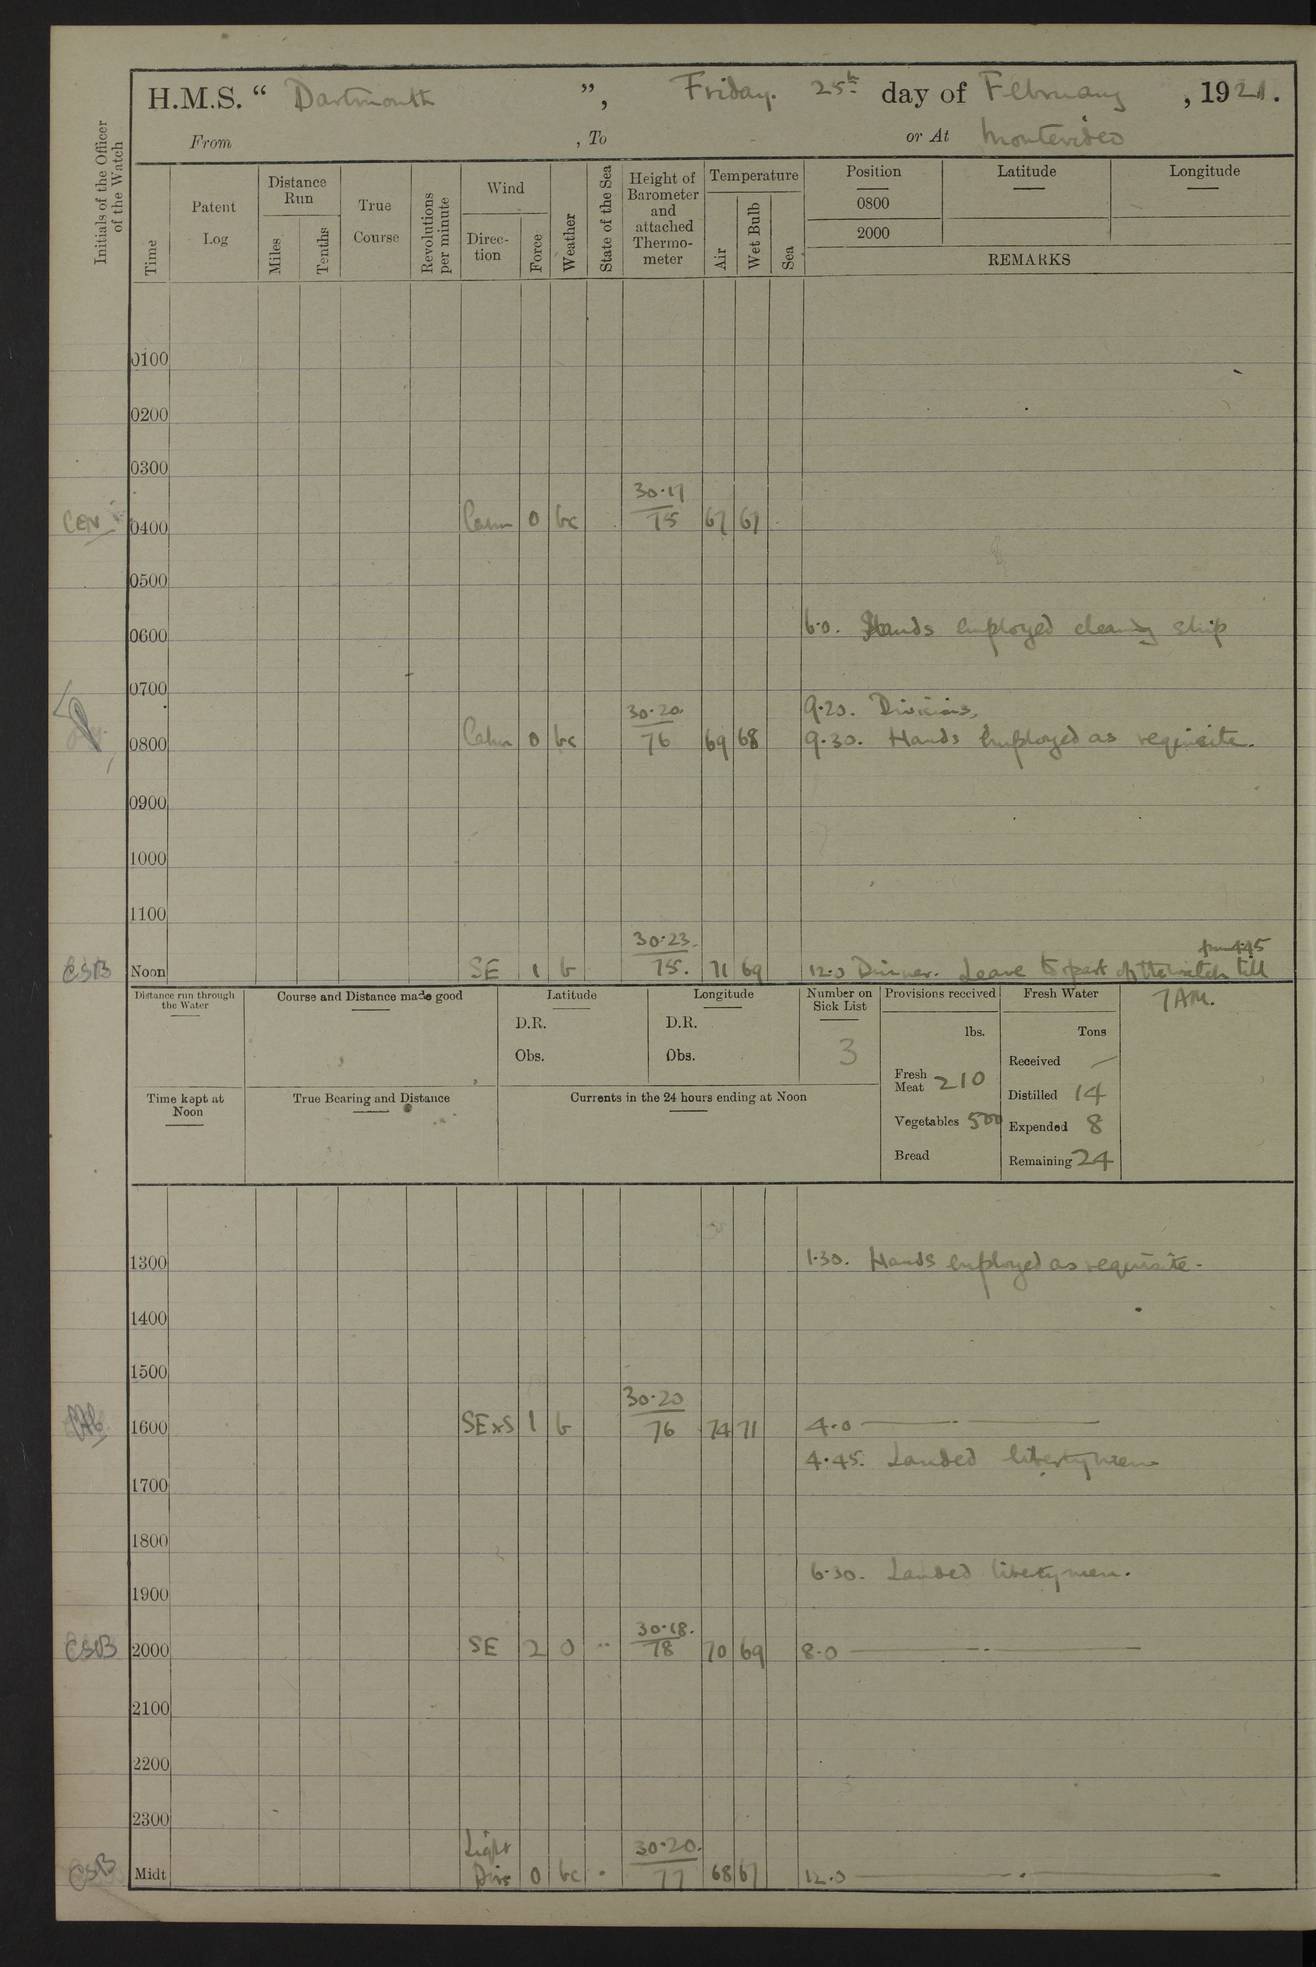 H.M.S. “ Dartmouth ”, Friday. 25th day of February, 1921.
From , To or At Montevideo
Initials of the Officer of the Watch
Time
Patent Log
Distance Run
Miles
Tenths
True Course
Revolutions per minute
Wind
Direction
Force
Weather
State of the Sea
Height of Barometer and attached Thermometer
Temperature
Air
Wet Bulb
Sea
Position
0800
2000
Latitude
Longitude
REMARKS
0100
0200
0300
CEN 0400 Calm 0 bc 30·17 75 67 67
0500
0600 6·0. Hands employed cleaning ship
0700 9·20. Divisions.
0800 Calm 0 bc 30·20 76 69 68 9·30. Hands employed as requisite.
0900
1000
1100
from 4.45
CSB Noon SE 1 b 30·23. 75. 71 69 12·0 Dinner. Leave to part of the watch till
7 AM.
Distance run through the Water
Course and Distance made good
Latitude
D.R.
Obs.
Longitude
D.R.
Obs.
Number on Sick List
3
Provisions received
lbs.
Fresh Meat 210
Vegetables 500
Bread
Fresh Water
Tons
Received —
Distilled 14
Expended 8
Remaining 24
Time kept at Noon
True Bearing and Distance
Currents in the 24 hours ending at Noon
1300 1·30. Hands employed as requisite.
1400
1500
1600 SExS 1 b 30·20 76 74 71 4·0
4·45. Landed libertymen
1700
1800
6·30. Landed libertymen.
1900
CSB 2000 SE 2 0 30·18. 78 70 69 8·0
2100
2200
2300
CSB Midt Light Airs 0 bc 30·20. 77 68 67 12·0